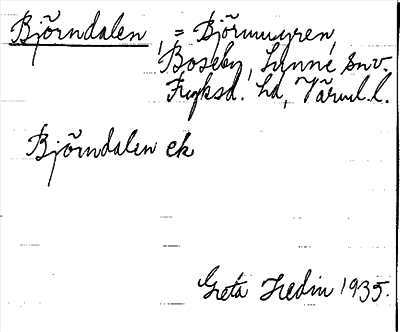 Björndalen, = Björnmyren,
Boseby, Lunne snv.
Fryksd. hd, Värml. l.
Björndalen ek
Greta Hedin 1935.